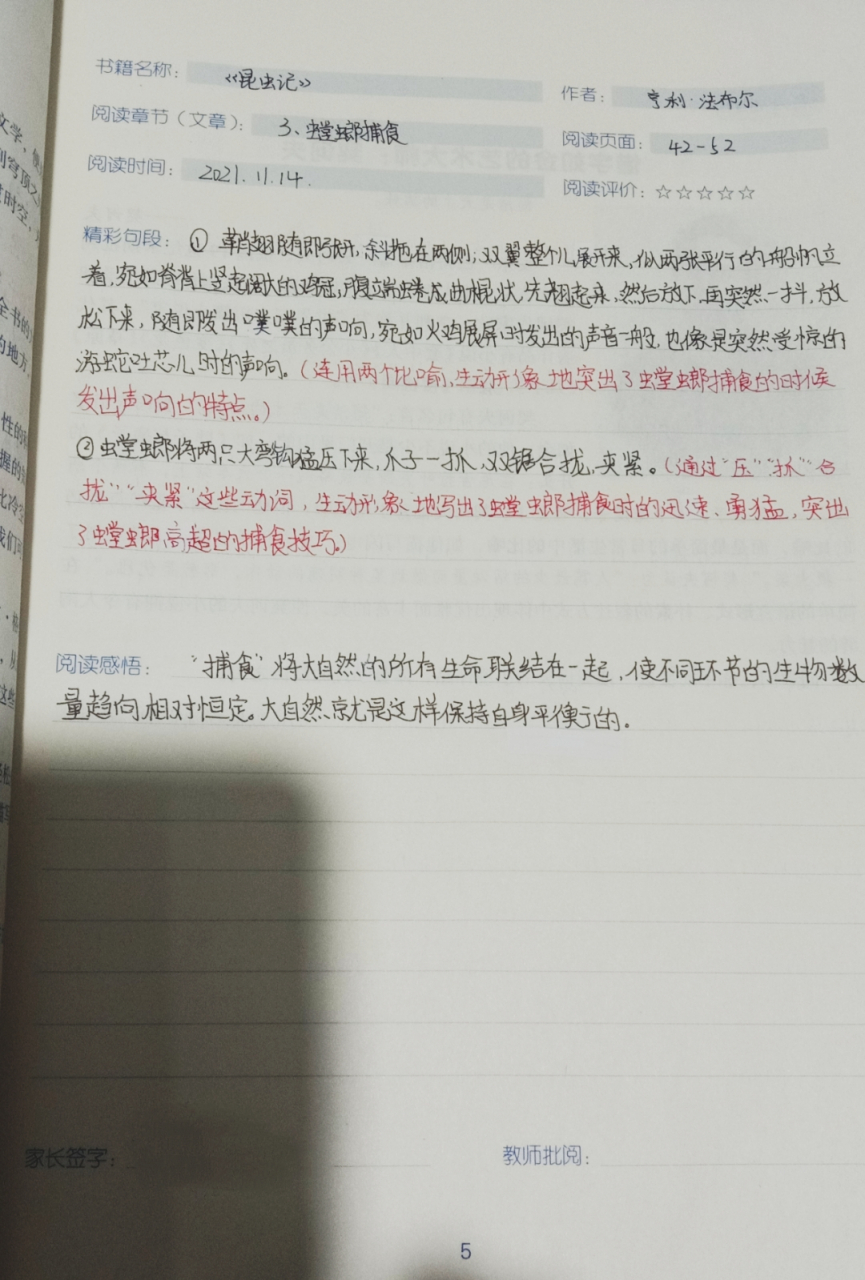 书籍名称： 《昆虫记》
作者： 亨利·法布尔
阅读章节（文章）： 3、螳螂捕食
阅读页面： 42-52
阅读时间： 2021.11.14.
阅读评价：☆☆☆☆☆
精彩句段： ① 鞘翅随即张开，斜拖在两侧；双翼整个儿展开来，似两张平行的船帆立
着，宛如脊背上竖起阔大的鸡冠，腹端蜷成曲棍状，先翘起来，然后放下，再突然一抖，放
松下来，随即发出噗噗的声响，宛如火鸡展屏时发出的声音一般，也像是突然受惊的
游蛇吐芯儿时的声响。（连用两个比喻，生动形象地突出了螳螂捕食的时候
发出声响的特点。）
②螳螂将两只大弯钩猛压下来，爪子一抓，双锯合拢，夹紧。（通过“压”“抓”“合
拢”“夹紧”这些动词，生动形象地写出了螳螂捕食时的迅速、勇猛，突出
了螳螂高超的捕食技巧）
阅读感悟： “捕食”将大自然的所有生命联结在一起，使不同环节的生物数
量趋向相对恒定。大自然就是这样保持自身平衡的.
家长签字：
教师批阅：
5